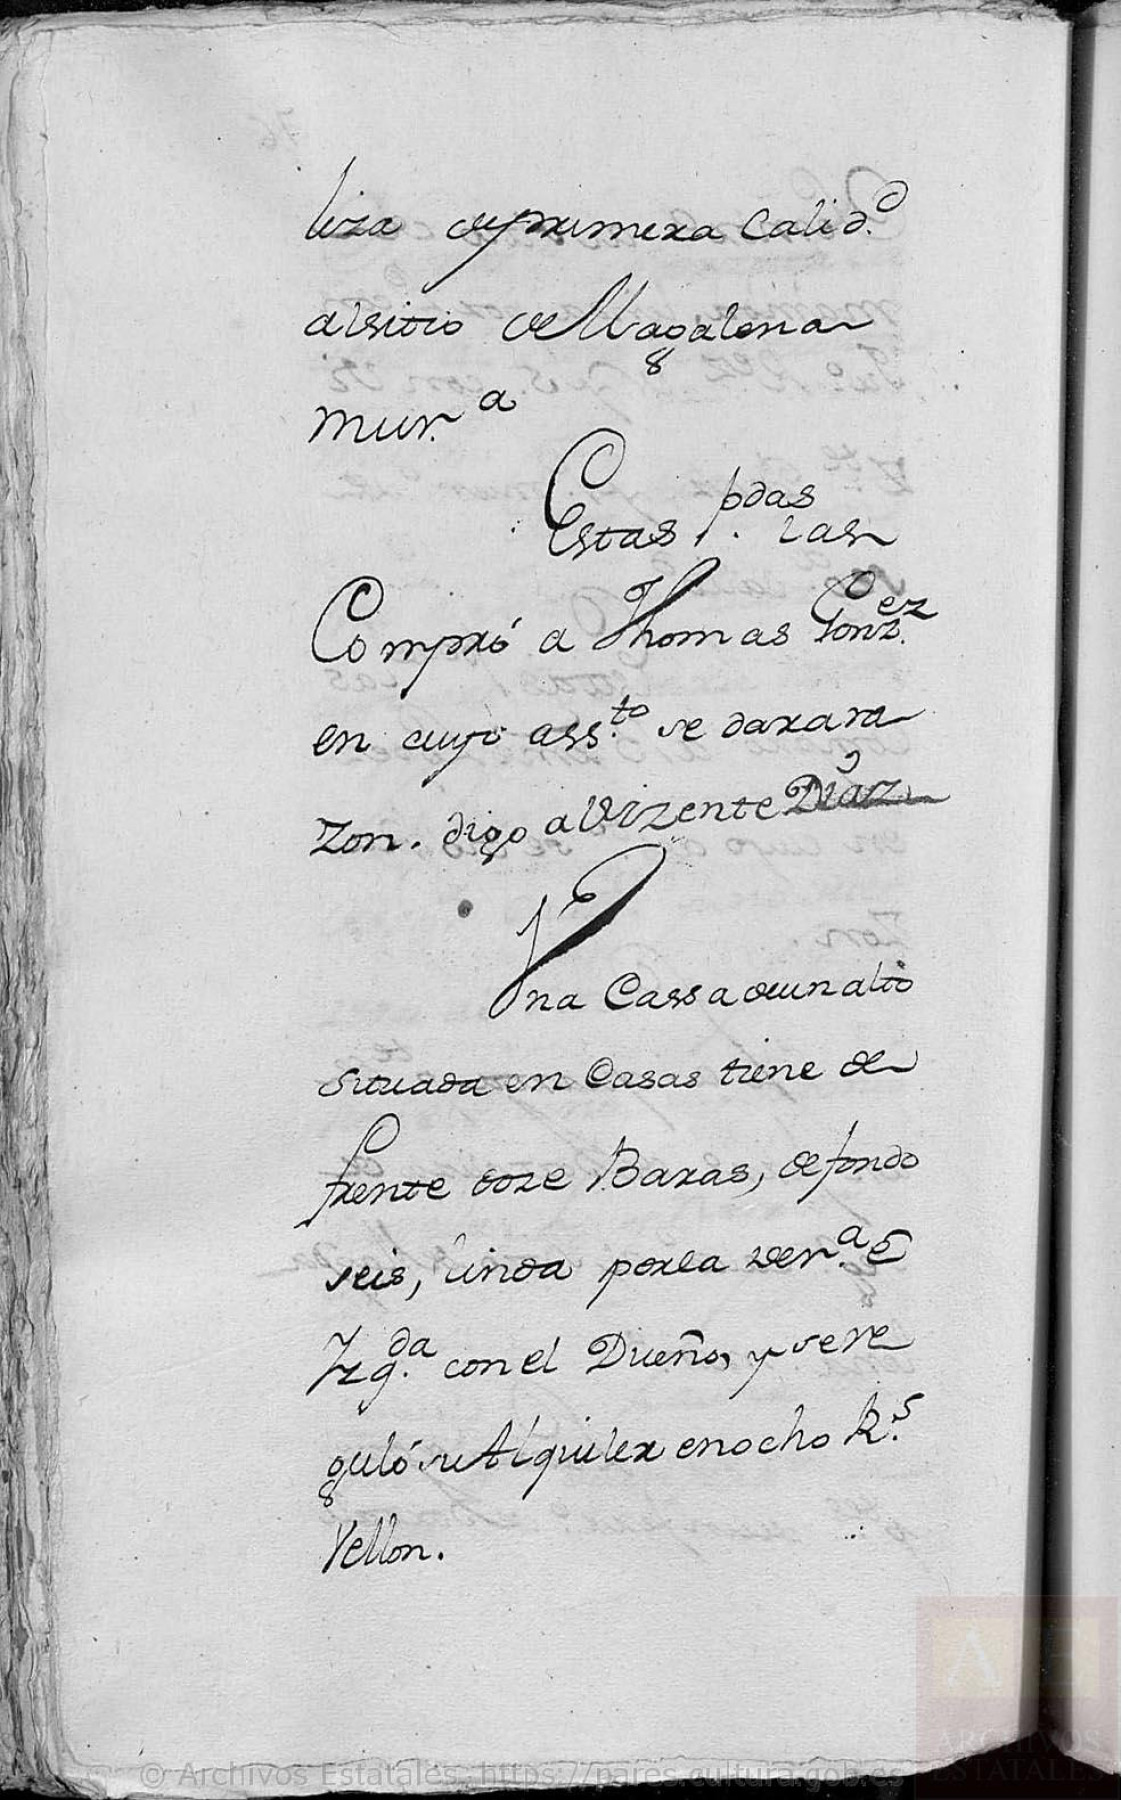 liza de primera Calid.d
al sitio de Magdalena
mur.a
Estas p.das las
Compró a Thomas Gonz.ez
en cuyo ass.to se dara ra
zon. digo a Vizente Diaz
Vna Cassa de un alto
Situada en Casas tiene de
frente doze Baras, de fondo
seis, linda por la der.a e
Yzq.da con el Dueño, y se re
guló su Alquiler en ocho R.s
Vellon.
© Archivos Estatales, https://pares.cultura.gob.es
AE
ARCHIVOS
ESTATALES